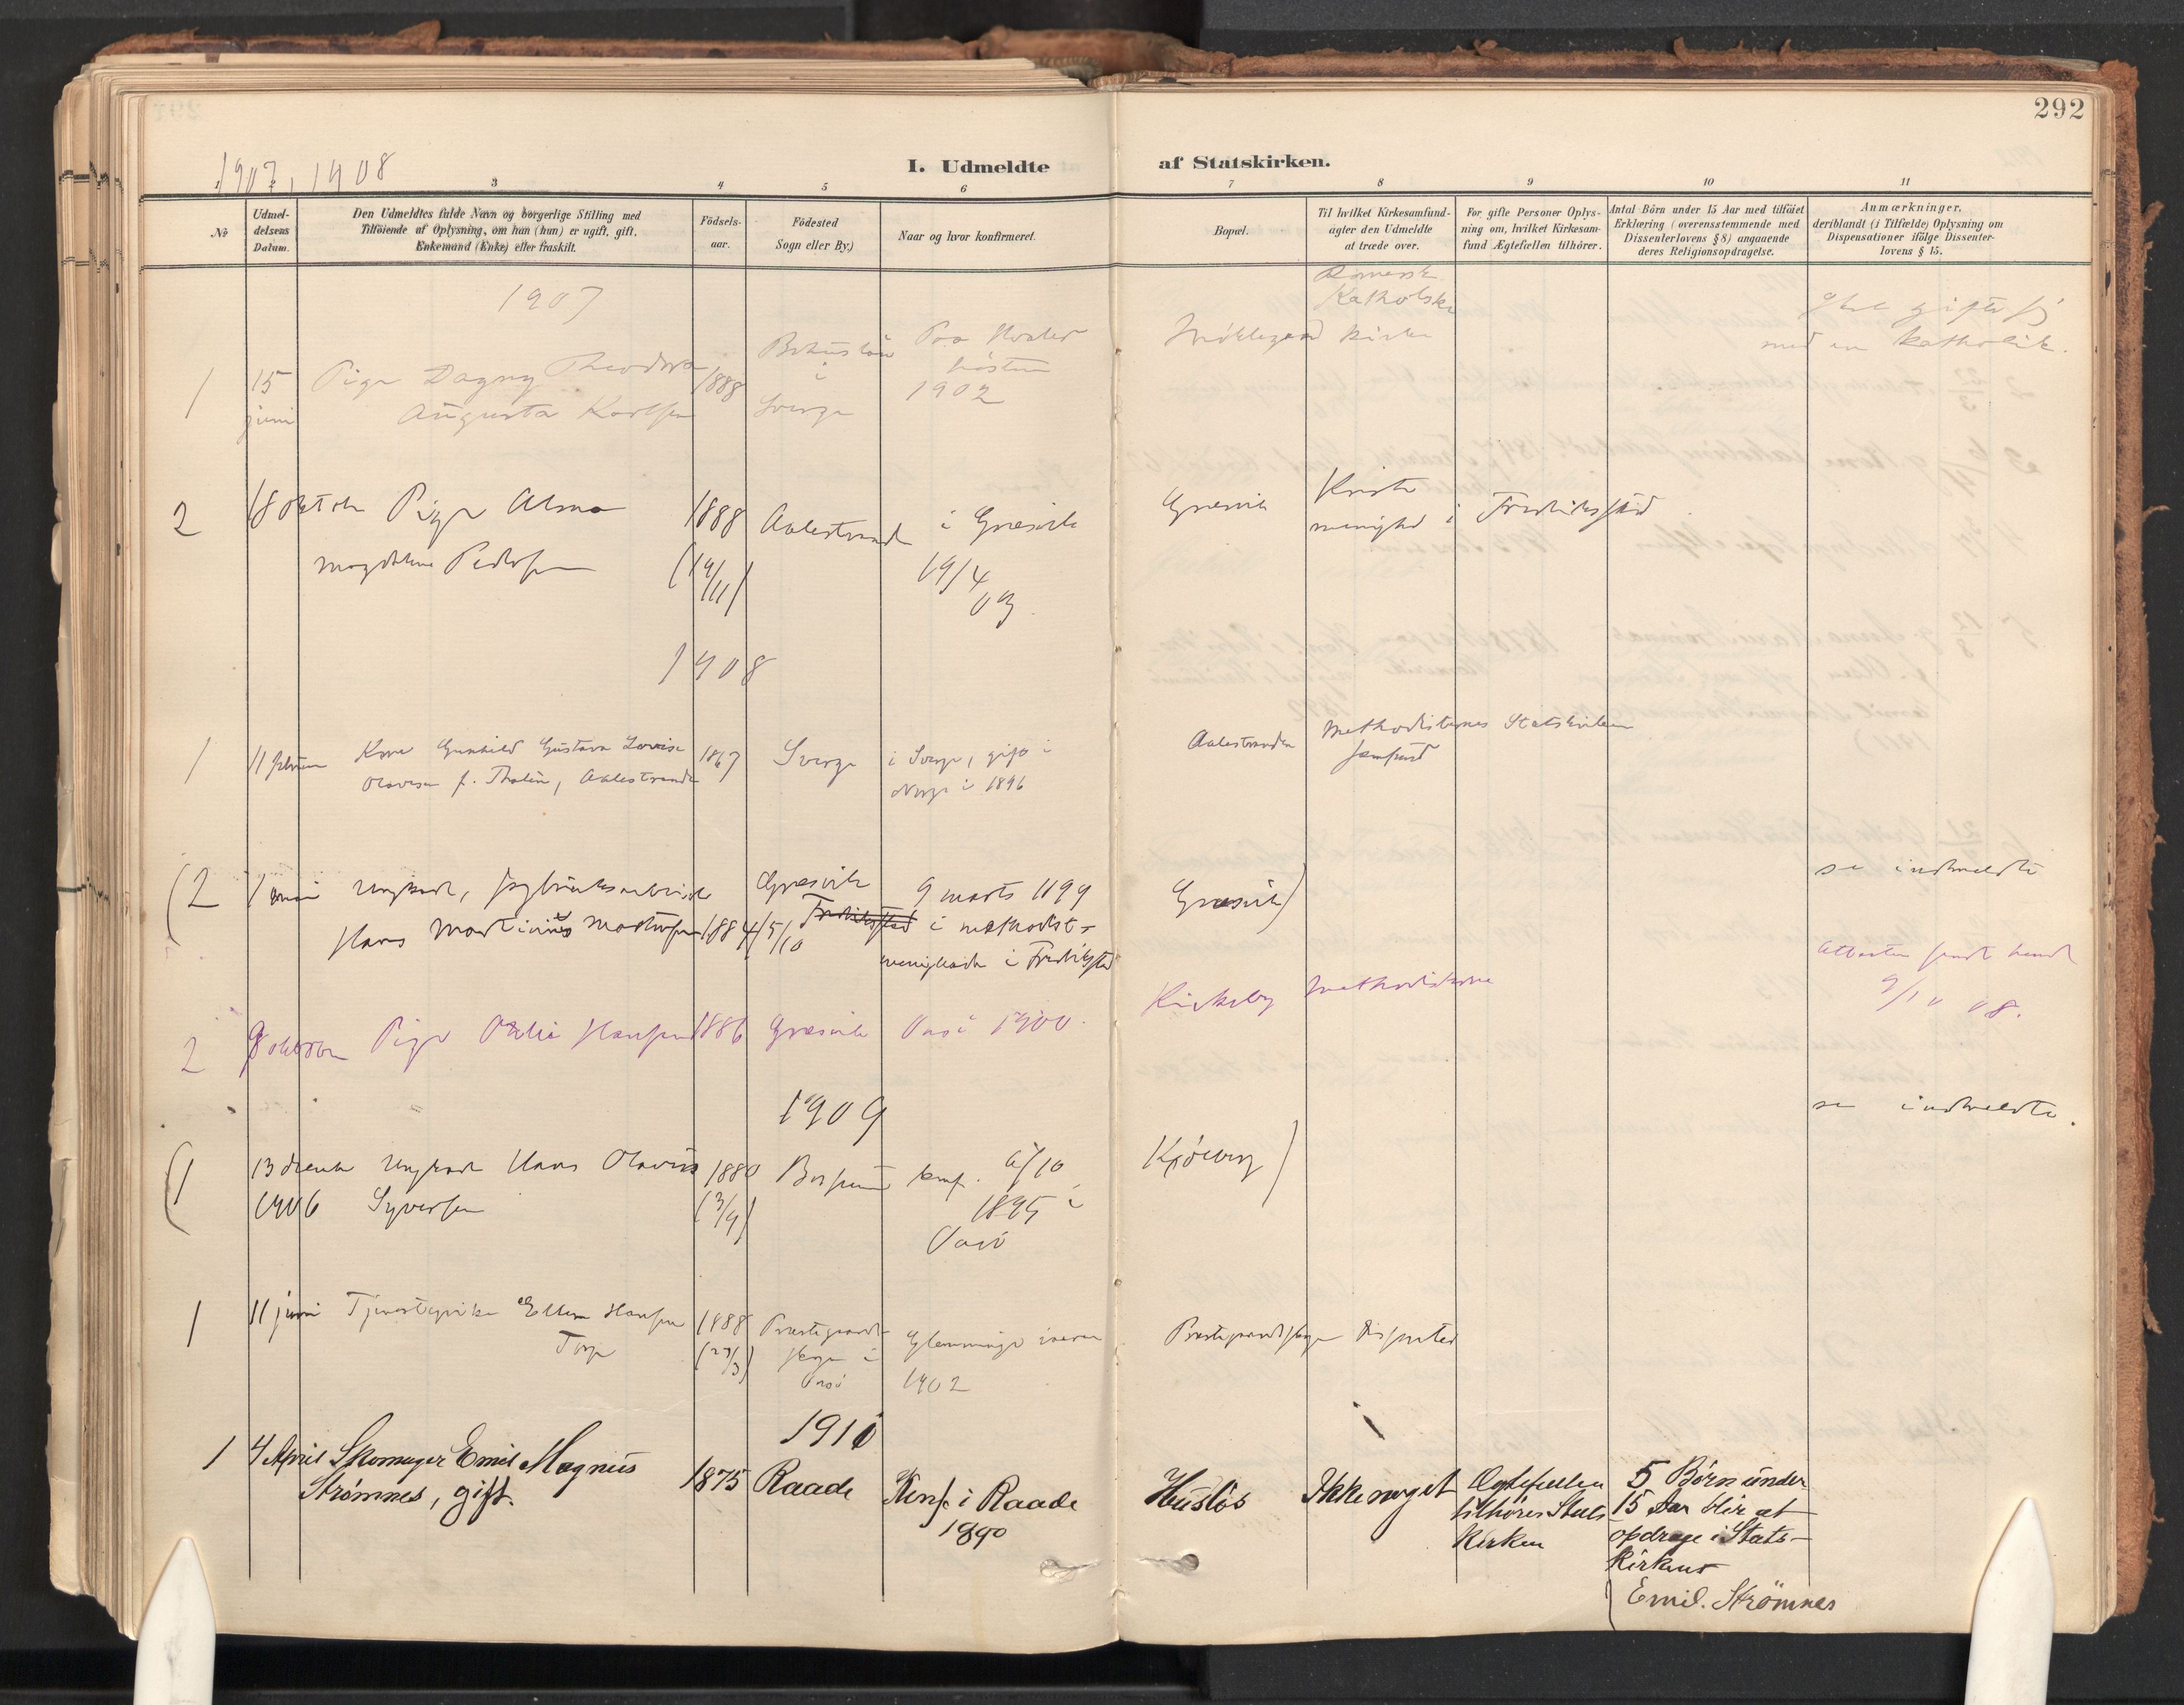 292
1907, 1908
I. Udmeldte af Statskirken.
3 4 5 6 7 8 9 10 11
No
Udmel-
delsens
Datum.
Den Udmeldtes fulde Navn og borgerlige Stilling med
Tilföiende af Oplysning, om han (hun) er ugift, gift,
Enkemand (Enke) eller fraskilt.
Födsels-
aar.
Födested
Sogn eller By.)
Naar og hvor konfirmeret.
Bopæl.
Til hvilket Kirkesamfund
agter den Udmeldte
at træde over.
For gifte Personer Oplys-
ning om, hvilket Kirkesam-
fund Ægtefællen tilhörer.
Antal Börn under 15 Aar med tilföiet
Erklæring (overensstemmende med
Dissenterlovens § 8) angaaende
deres Religionsopdragelse.
Anmærkninger,
deriblandt (i Tilfælde) Oplysning om
Dispensationer ifölge Dissenter-
lovens § 15.
1907
1
15
juni
Pige Dagny Theodora
Augusta Karlsen
1888
i
Sverge
Paa Hvaler
hösten
1902
Romersk
Katholske
kirke
Skal gifte sig
med en katholik.
2
18 oktober
Pige Alma
Magdalene Pedersen
1888
Aalestrand
i Græsvik
19/4
03.
Græsvik
Kristi
menighed i Fredriksstad
1908
1
11 februar
Kone Gunhild Gustava Lovise
Olavesen f. Thalin, Aalestranden
1867
Sverge
i Sverge, gift i
Norge i 1896
Aalestranden
Methodisternes
samfund
Statskirken
(2
Ungkarl,
Hans Martinius Martinsen
1884 15/10
Græsvik
Fredriksstad
9 marts 1899
i methodist-
menigheden i Fredriksstad
Græsvik)
se indmeldte
2
9 oktober
Pige Hansen
1886
Græsvik
Onsö 1900.
Kirkeby
Methodisterne
Attesten sendt hende
9/10 08.
1909
(1
1906
Ungkarl Hans Olavius
Syversen
1880
konf.
1895 i
Onsö
Kjölberg)
se indmeldte.
1
11 juni
Tjenestepike Ellen Hansen
Torp
1888
Prestegaards-
skogen i
Onsö
Glemminge
1902
Prestegaardsskogen
1910
1
4 April
Skomager Emil Magnus
Strømnes, gift.
1875
Raade
Konf. i Raade
1890
Husløs
Ikke noget
Ægtefællen
tilhører Stats
Kirken
5 Børn under
15 Aar blir at
opdrage i Stats-
Kirken
Emil. Strømnes